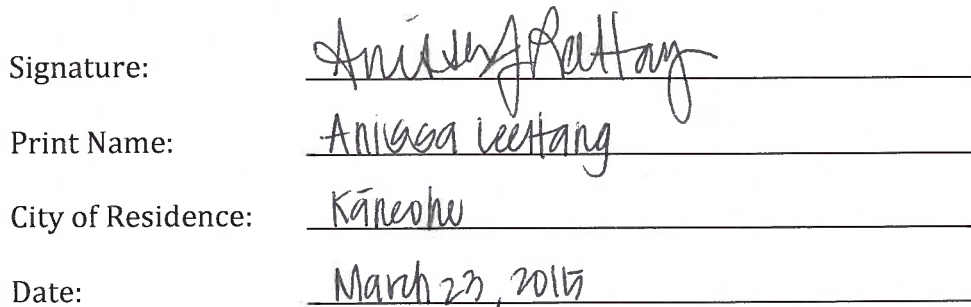 Signature: Anissa J Rattay
Print Name: Anissa Leettang
City of Residence: Kāneohe
Date: March 23, 2015